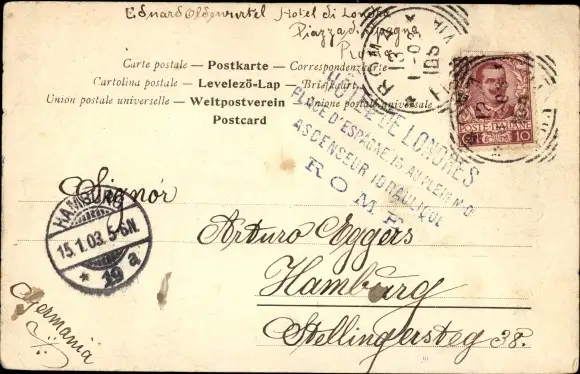 Eduard Oldenwurtel Hotel di Londra
Piazza di Spagna
Carte postale — Postkarte — Correspondenzkarte
Cartolina postale — Levelező-Lap — Briefkaart
Union postale universelle — Weltpostverein — Unione postale universale
Postcard
ROMA
13
1-03
DE LONDRES
PLACE D'ESPAGNE 15. AU PLEIN MIDI
ASCENSEUR IDRAULIQUE
ROME
POSTE ITALIANE
10
Signór
HAMBURG
15.1.03.5-6N.
* 19 a
Arturo Eggers
Hamburg
Stellingersteg 38.
Germania